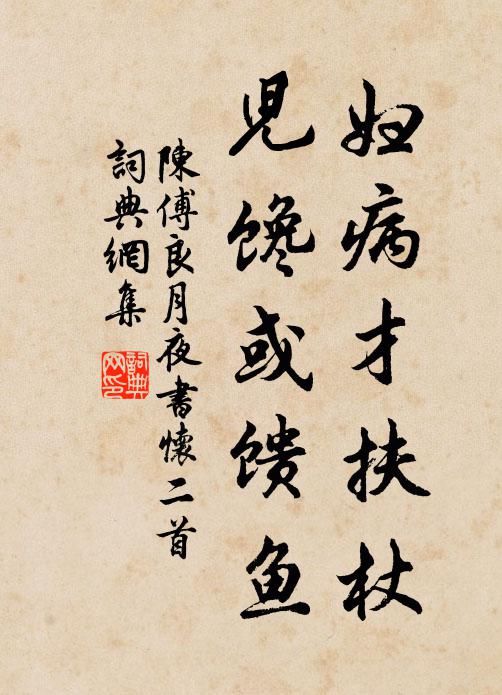 妇病才扶杖
児馋或馈鱼
陳傅良月夜書懷二首
詞典網集
詞典网印